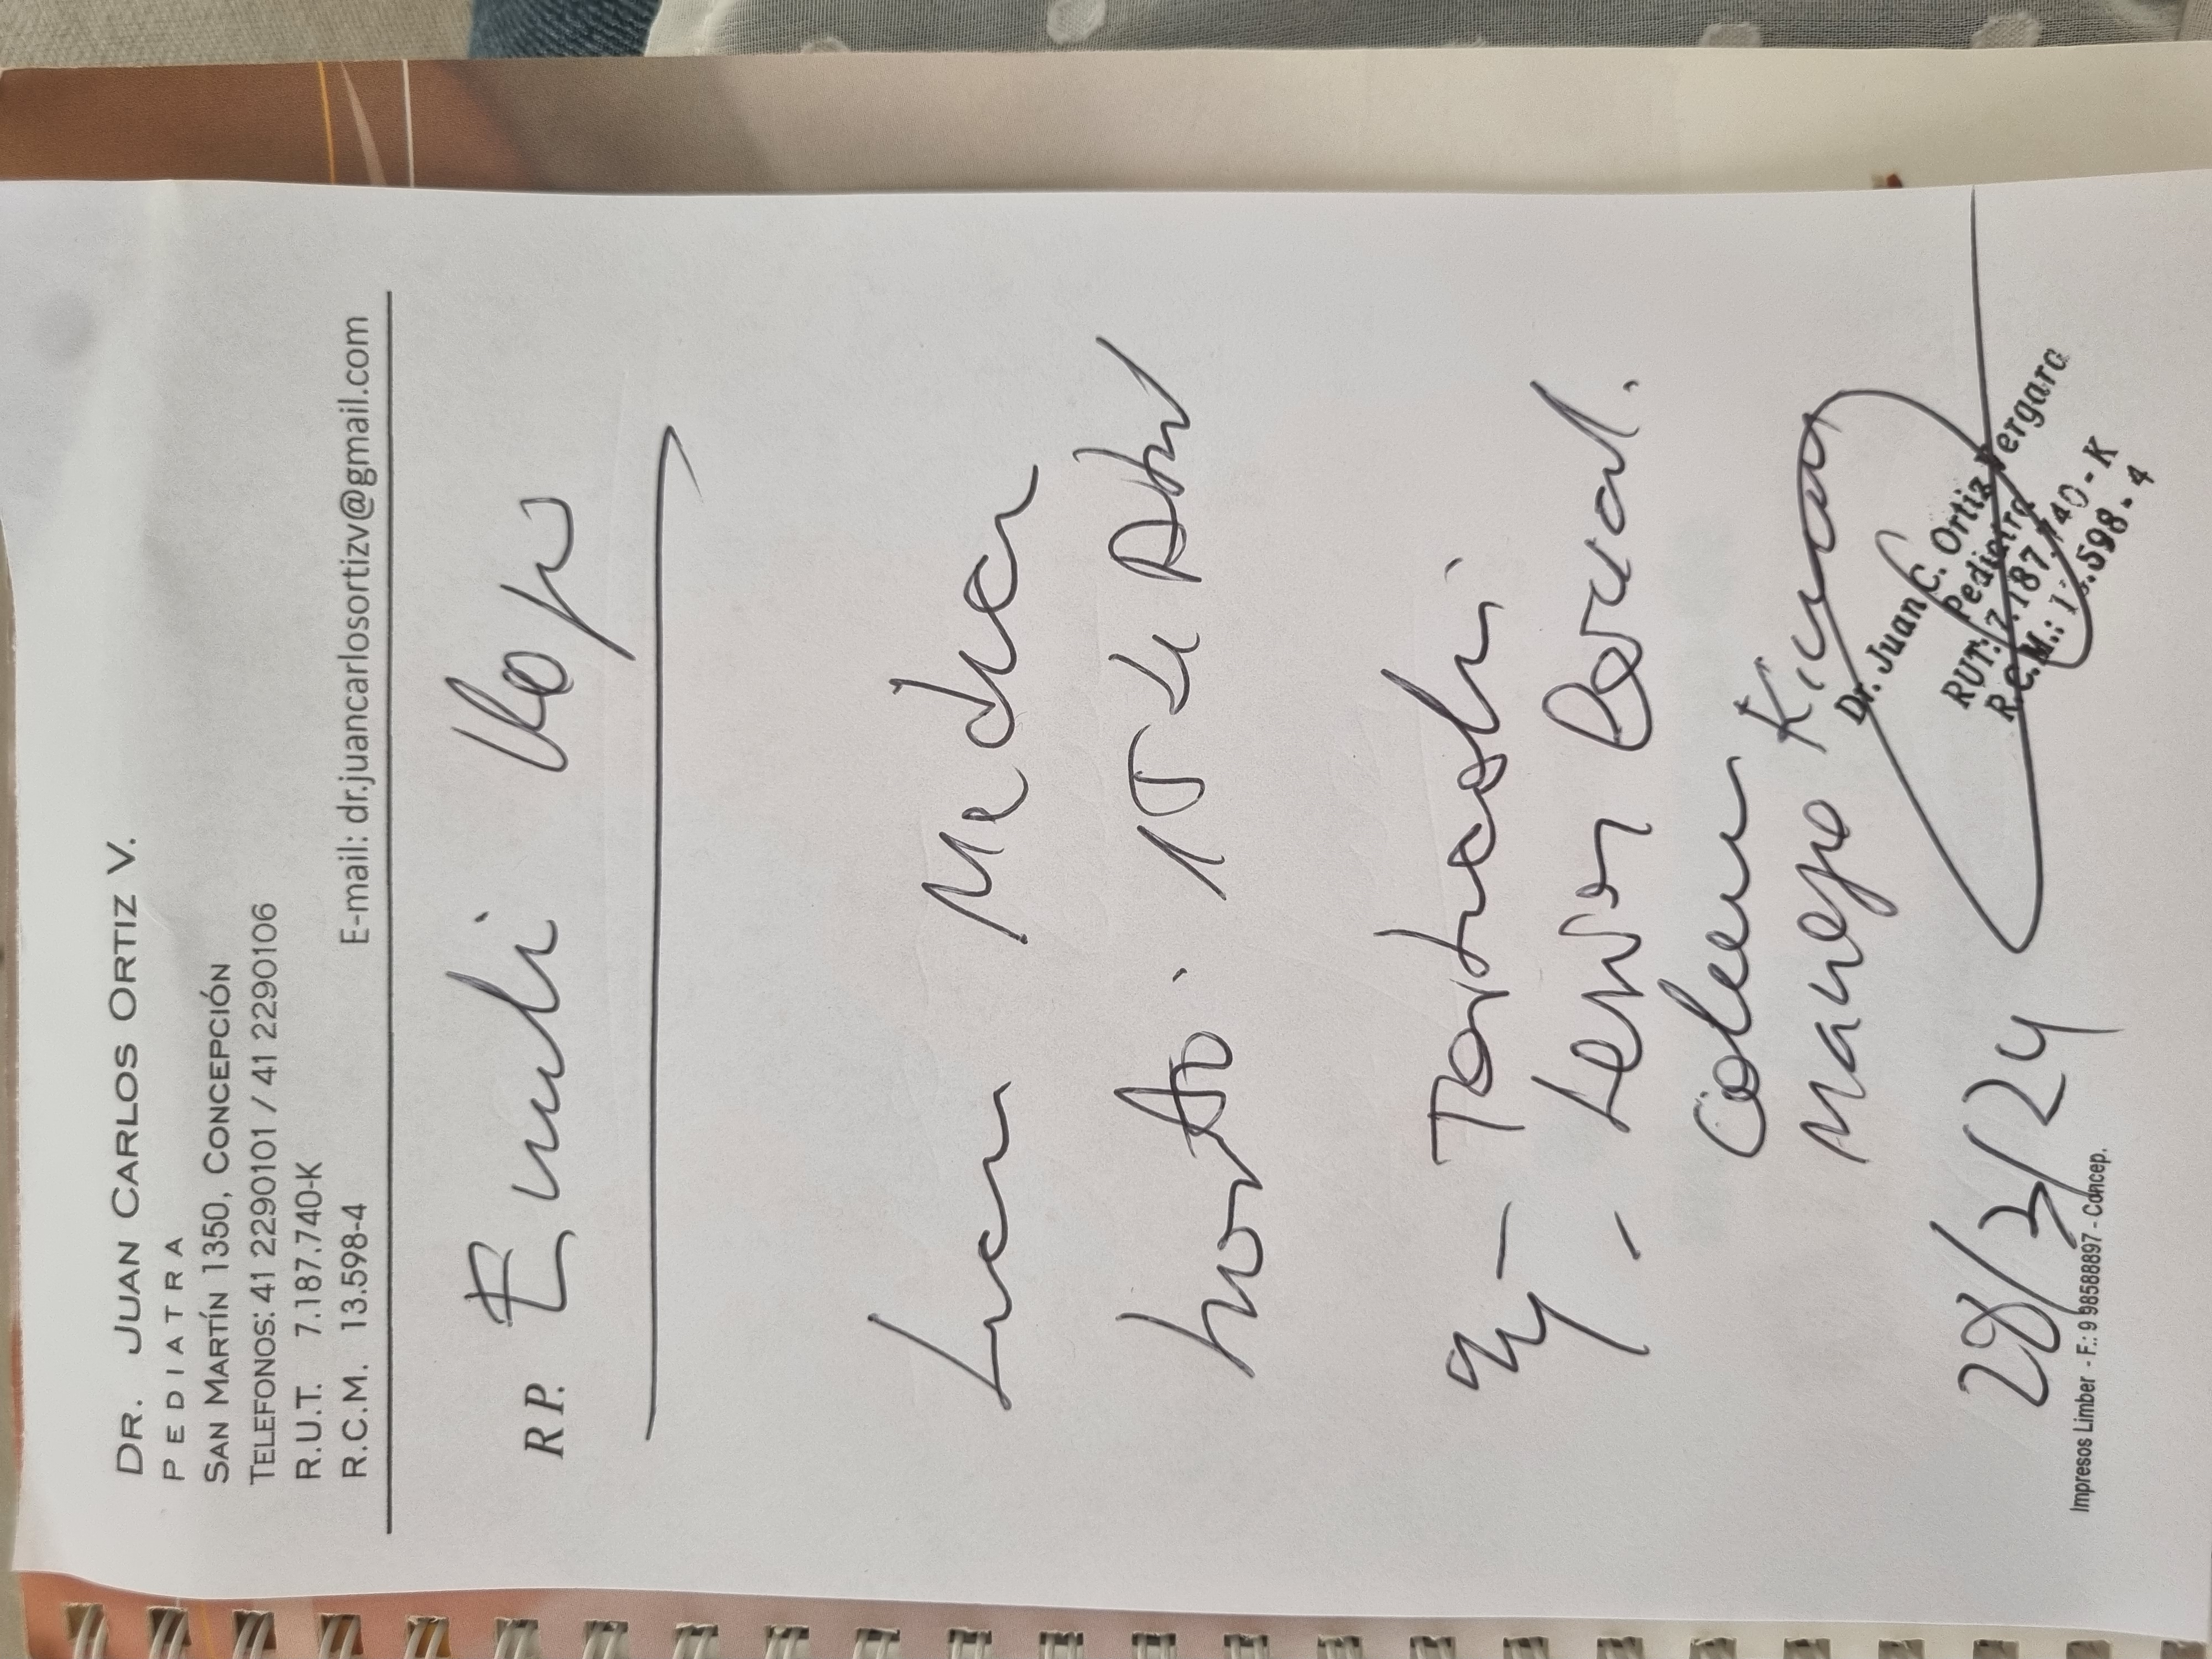 DR. JUAN CARLOS ORTIZ V.
PEDIATRA
SAN MARTÍN 1350, CONCEPCIÓN
TELEFONOS: 41 2290101 / 41 2290106
R.U.T. 7.187.740-K
R.C.M. 13.598-4
E-mail: dr.juancarlosortizv@gmail.com
RP. Emili
Licen Medica
hasta 15 de Abril
Dg - Torticolis
- Lesion Cervical.
Column
Manejo Kine
28/3/24
Dr. Juan C. Ortiz Vergara
Pediatra
RUT: 7.187.740-K
R.C.M.: 13.598-4
Impresos Limber - F.: 9 98588897 - Concep.